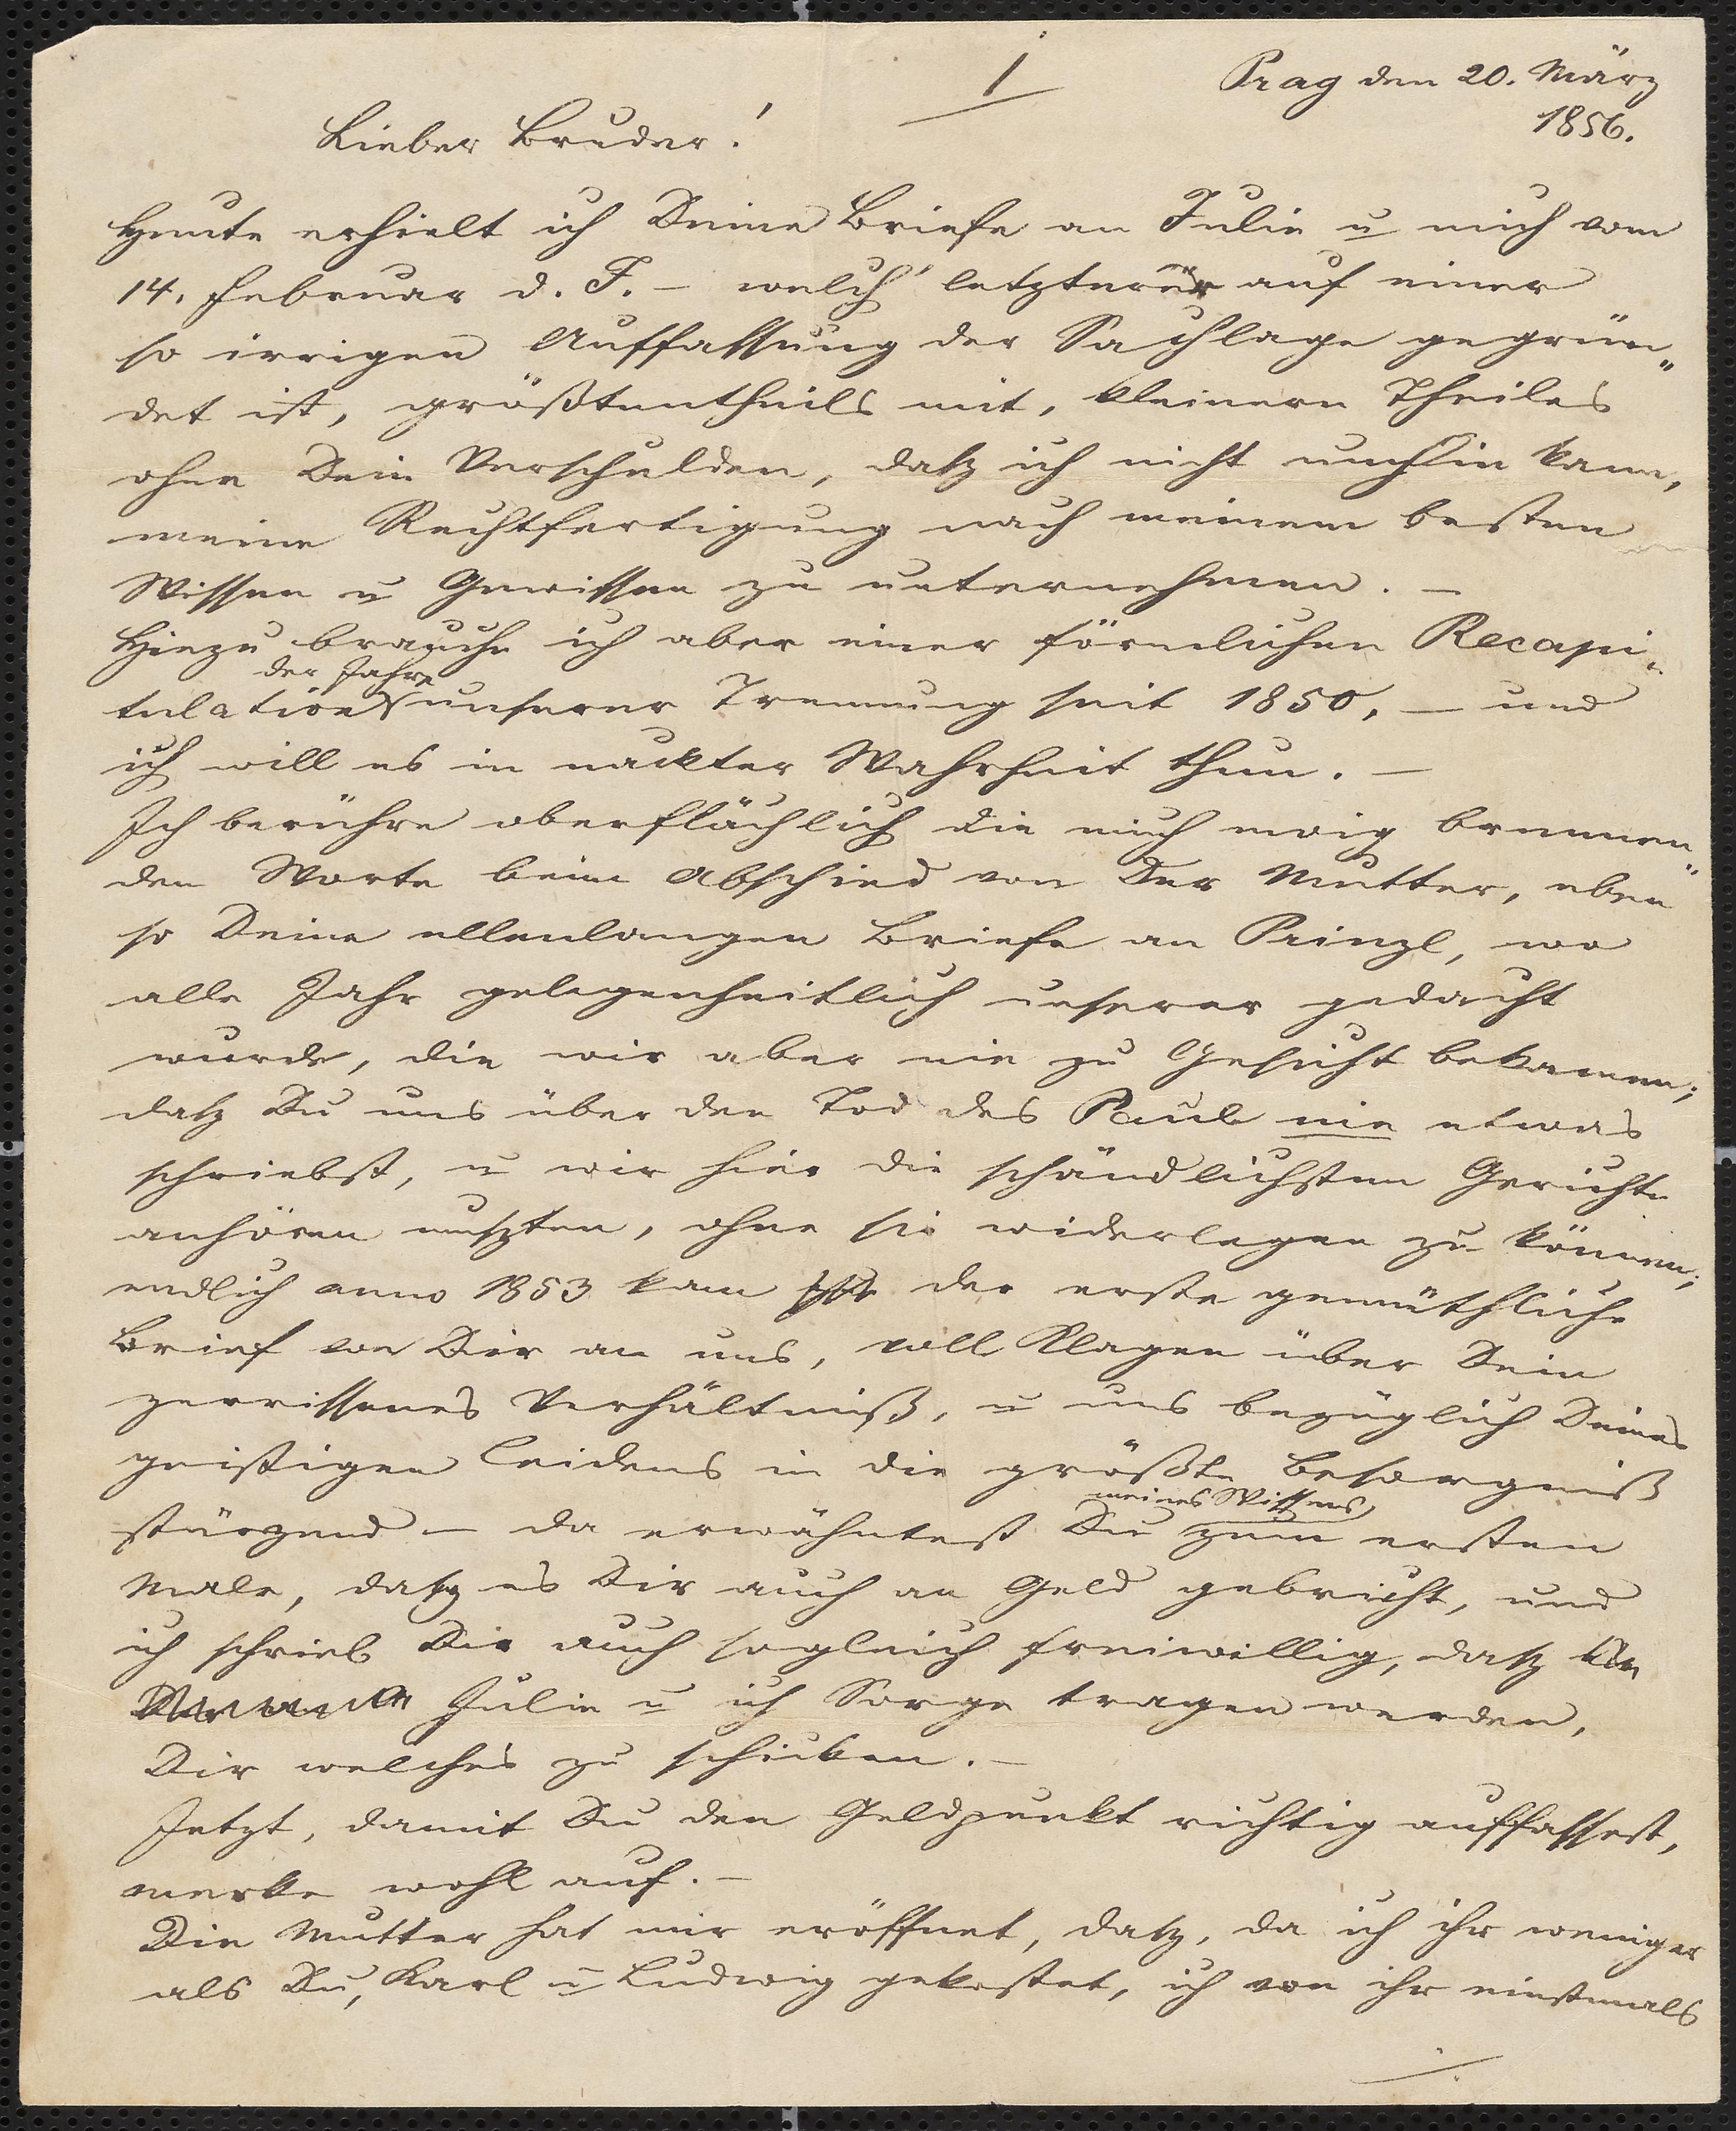 1
Prag den 20. März
1856.
Lieber Bruder!
Heute erhielt ich Deine Briefe an Julie u mich vom
14. Februar d. J. – welch' letzterer auf einer
so irrigen Auffassung der Sachlage gegrün„
det ist, größtentheils mit, kleinern Theiles
ohne Dein Verschulden, daß ich nicht umhin kann,
meine Rechtfertigung nach meinem besten
Wissen u Gewissen zu unternehmen. –
Hiezu brauche ich aber einer förmlichen Recapi„
der Jahre
tulation unserer Trennung seit 1850, – und
ich will es in nackter Wahrheit thun. –
Ich berühre oberflächlich die mich ewig brennen„
den Worte beim Abschied von Der Mutter, eben
so Deine ellenlangen Briefe an Prinzl, wo
alle Jahr gelegenheitlich unserer gedacht
wurde, die wir aber nie zu Gesicht bekamen;
daß Du uns über den Tod des Paul nie etwas
schriebst, u wir hier die schändlichsten Gerüchte
anhören mußten, ohne sie widerlegen zu können;
endlich anno 1853 kam der erste gemüthliche
Brief von Dir an uns, voll Klagen über Dein
zerrissenes Verhältniß, u uns bezüglich Deines
geistigen Leidens in die größte Besorgniß
meines Wissens
stürzend – da erwähntest Du zum ersten
Male, daß es Dir auch an Geld gebricht, und
ich schrieb Dir auch sogleich freiwillig, daß
Julie u ich Sorge tragen werden,
Dir welches zu schicken. –
Jetzt, damit Du den Geldpunkt richtig auffassest,
merke wohl auf. –
Die Mutter hat mir eröffnet, daß, da ich ihr weniger
als Du, Karl u Ludwig gekostet, ich von ihr einstmals
./.